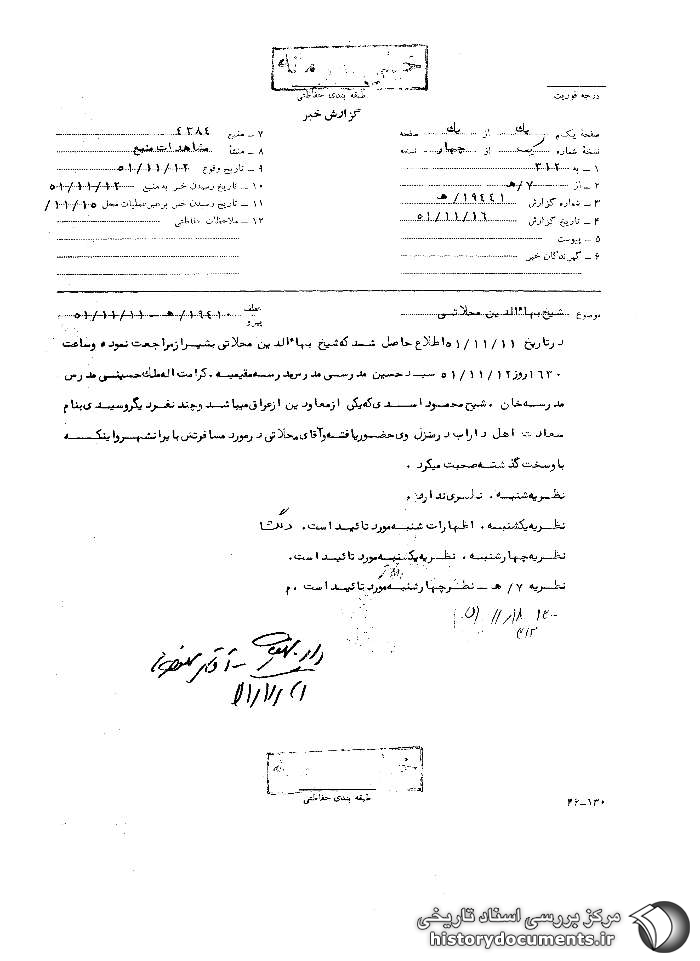 خیلی محرمانه
طبقه بندی حفاظتی
درجه فوریت
گزارش خبر
صفحه یکم یک از یک صفحه
نسخه شماره یک از چهار نسخه
۱ ــ به ۳۱۲
۲ ــ از ۷/هـ
۳ ــ شماره گزارش ۱۹۴۴۱/هـ
۴ ــ تاریخ گزارش ۵۱/۱۱/۱۶
۵ ــ پیوست
۶ ــ گیرندگان خبر
۷ ــ منبع ۴۳۸۴
۸ ــ منشأ مشاهدات منبع
۹ ــ تاریخ وقوع ۵۱/۱۱/۱۲
۱۰ ــ تاریخ رسیدن خبر به منبع ۵۱/۱۱/۱۲
۱۱ ــ تاریخ رسیدن خبر برهبر عملیات محل ۱۱/۱۵/
۱۲ ــ ملاحظات حفاظتی
موضوع شیخ بهاءالدین محلاتی
عطف
پیرو ۱۹۴۱۰/هـ ــ ۵۱/۱۱/۱۱
در تاریخ ۵۱/۱۱/۱۱ اطلاع حاصل شد که شیخ بهاءالدین محلاتی بشیراز مراجعت نموده و ساعت
۱۶۳۰ روز ۵۱/۱۱/۱۲ سید حسین مدرسی مدرس مدرسه مقیمیه، کرامت اله ملک حسینی مدرس
مدرسه خان، شیخ محمود اسدی که یکی از معاودین از عراق میباشد و چند نفر دیگر و سیدی بنام
سعادت اهل داراب در منزل وی حضور یافته و آقای محلاتی در مورد مسافرتش بایرانشهر و اینکه
باو سخت گذشته صحبت میکرد.
نظریه شنبه. نظری ندارد.
نظریه یکشنبه. اظهارات شنبه مورد تائید است.
نظریه چهارشنبه. نظریه یکشنبه مورد تائید است.
نظریه ۷/هـ ــ نظر چهارشنبه مورد تائید است. م
۳۱۲
طبقه بندی حفاظتی
۴۶ــ۱۳۰
مرکز بررسی اسناد تاریخی
historydocuments.ir